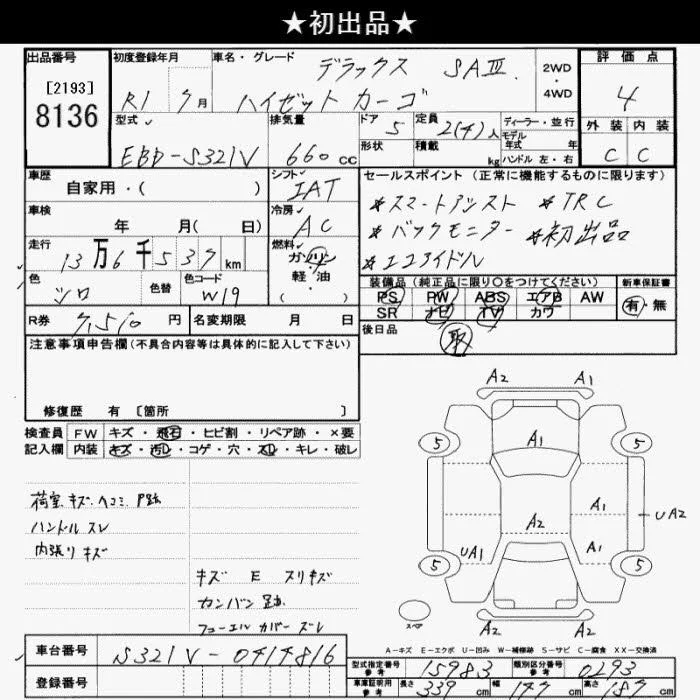 ★初出品★
出品番号 初度登録年月 車名・グレード デラックス SAⅢ 2WD 評価点
[2193] R1 7月 ハイゼット カーゴ 4WD 4
8136 型式 排気量 ドア 5 定員 2(4)人 ディーラー・並行 外装 内装
モデル年式 年
EBD-S321V 660cc 形状 積載 kg ハンドル 左・右 C C
車歴 シフト セールスポイント(正常に機能するものに限ります)
自家用・( ) IAT *スマートアシスト *TRC
車検 冷房 *バックモニター *初出品
年 月( 日) AC *エコアイドル
走行 燃料
13万6千537km ガソリン
軽・油
( )
色 色替 色コード 装備品(純正品に限り○をつけてください) 新車保証書
シロ W19 PS PW ABS エアB AW 有・無
SR ナビ TV カワ
R券 7,510円 名変期限 月 日 後日品 取
注意事項申告欄(不具合内容等は具体的に記入して下さい)
修復歴 有 〔箇所 〕
検査員 FW キズ・飛石・ヒビ割・リペア跡・×要
記入欄 内装 キズ・汚れ・コゲ・穴・スレ・キレ・破レ
荷室 キズ、ヘコミ、P跡
ハンドル スレ
内張り キズ
キズ E スリキズ
カンバン 跡
フューエル カバー ズレ
A2 A1
5 A1 5
A1
A2 UA2
UA1 A1
5 5
スペア A2 A2
A-キズ E-エクボ U-凹み W-補修跡 S-サビ C-腐食 XX-交換済
車台番号 S321V-0414816
登録番号
型式指定番号 参考 15983 類別区分番号 参考 0293
車庫証明用 参考 長さ 339cm 幅 147cm 高さ 187cm